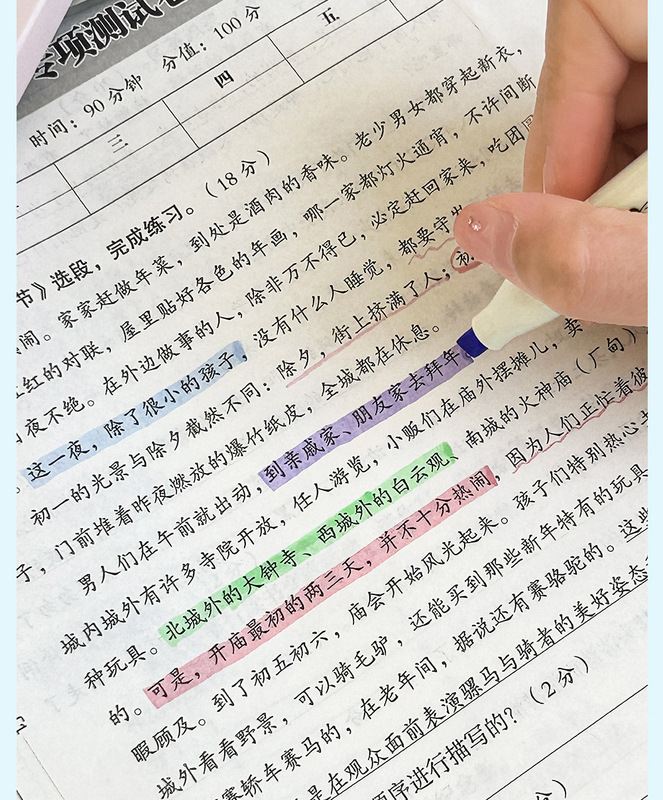 专项测试卷
时间：90分钟 分值：100分
三 四 五
节》选段，完成练习。（18分）
闹。家家赶做年菜，到处是酒肉的香味。老少男女都穿起新衣，
红红的对联，屋里贴好各色的年画，哪一家都灯火通宵，不许间断，
日夜不绝。在外边做事的人，除非万不得已，必定赶回家来，吃团
。这一夜，除了很小的孩子，没有什么人睡觉，都要守岁
初一的光景与除夕截然不同：除夕，街上挤满了人；初
子，门前堆着昨夜燃放的爆竹纸皮，全城都在休息。
男人们在午前就出动，到亲戚家、朋友家去拜年
城内城外有许多寺院开放，任人游览，小贩们在庙外摆摊儿，卖
种玩具。北城外的大钟寺、西城外的白云观、南城的火神庙（厂甸）
的。可是，开庙最初的两三天，并不十分热闹，因为人们正忙着彼
暇顾及。到了初五初六，庙会开始风光起来。孩子们特别热心
城外看看野景，可以骑毛驴，还能买到那些新年特有的玩具
赛轿车赛马的，在老年间，据说还有赛骆驼的。这些
是在观众面前表演骡马与骑者的美好姿态
顺序进行描写的？（2分）
分）